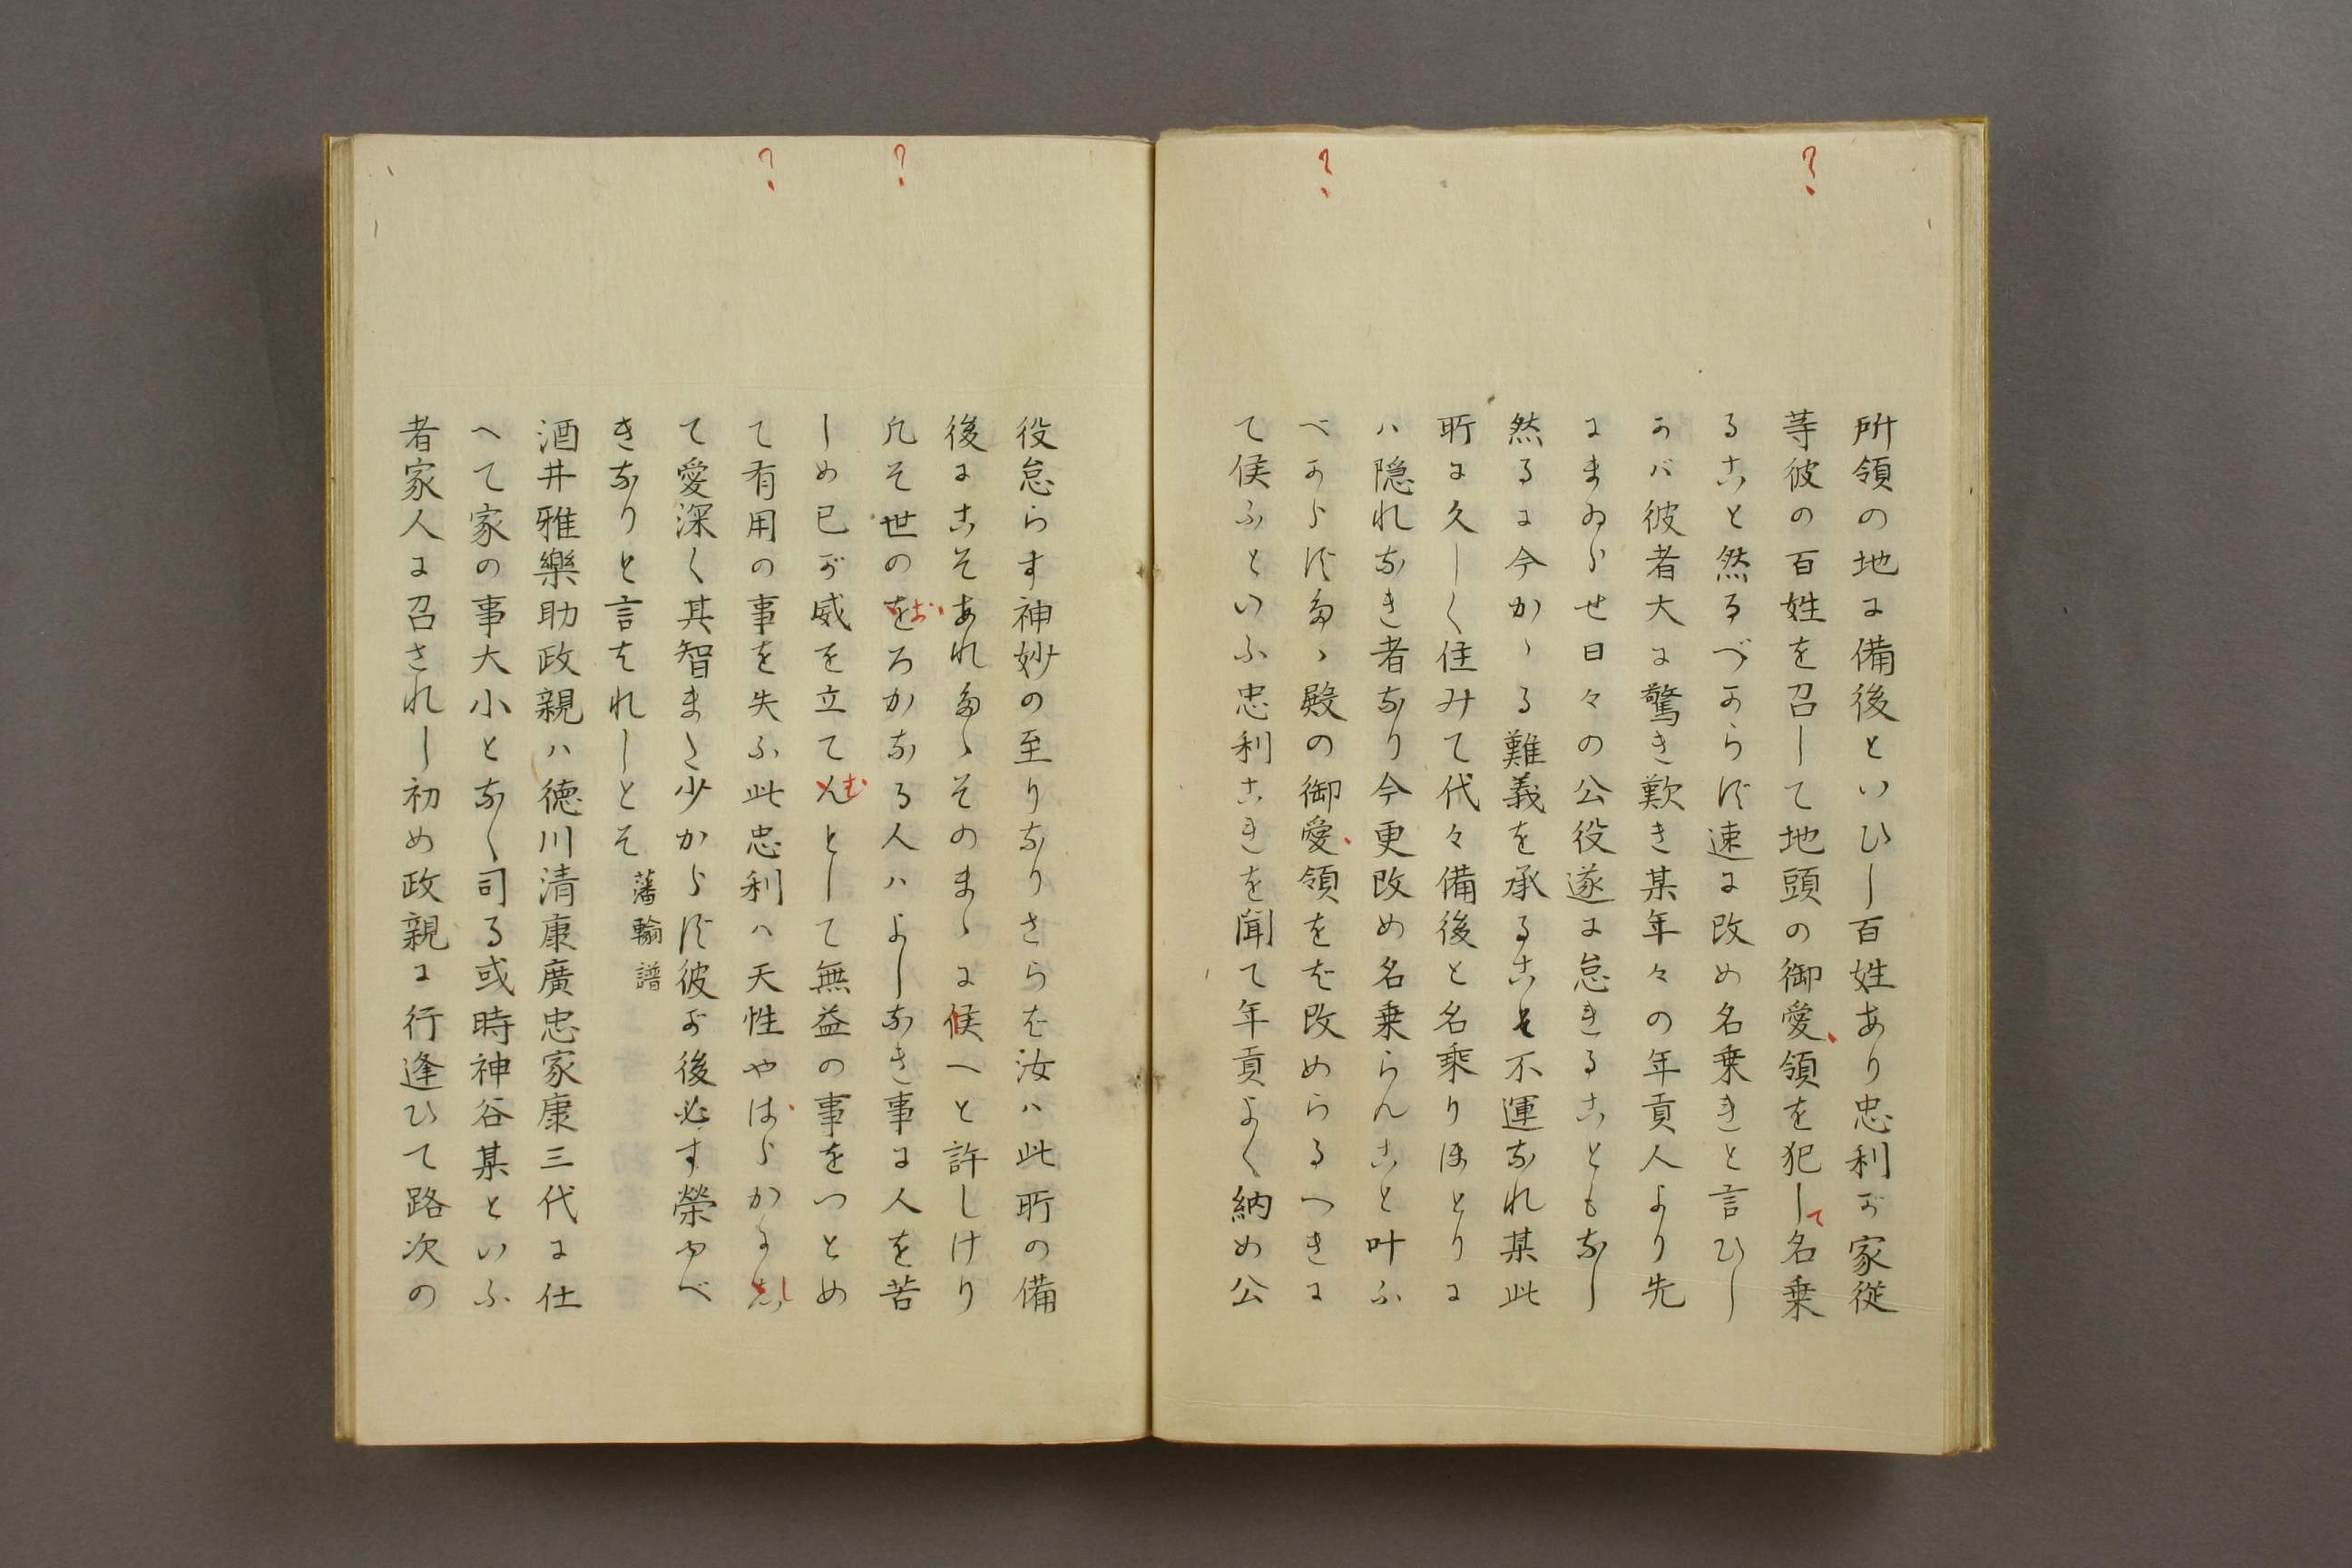 所領の地に備後といひし百姓あり忠利が家従
等彼の百姓を召して地頭の御愛領を犯し名乗
ること然るべからず速に改め名乗きと言ひし
かバ彼者大に驚き歎き某年々の年貢人より先
にまゐらせ日々の公役遂に怠きることもなし
然るに今かゝる難義を承ること不運なれ某此
所に久しく住みて代々備後と名乗りほとりに
ハ隠れなき者なり今更改め名乗らんこと叶ふ
べからずたゝ殿の御愛領をを改めらるへきに
て候ふといふ忠利こきを聞て年貢よく納め公
役怠らす神妙の至りなりさらを汝ハ此所の備
後にこそあれたゝそのまゝに候へと許しけり
凡そ世のをろかなる人ハよしなき事に人を苦
しめ已が威を立てんとして無益の事をつとめ
て有用の事を失ふ此忠利ハ天性やはらかに
て愛深く其智また少からず彼が後必す榮ゆべ
きなりと言をれしとそ 藩翰譜
酒井雅樂助政親ハ徳川清康廣忠家康三代に仕
へて家の事大小となく司る或時神谷某といふ
者家人に召されし初め政親に行逢ひて路次の